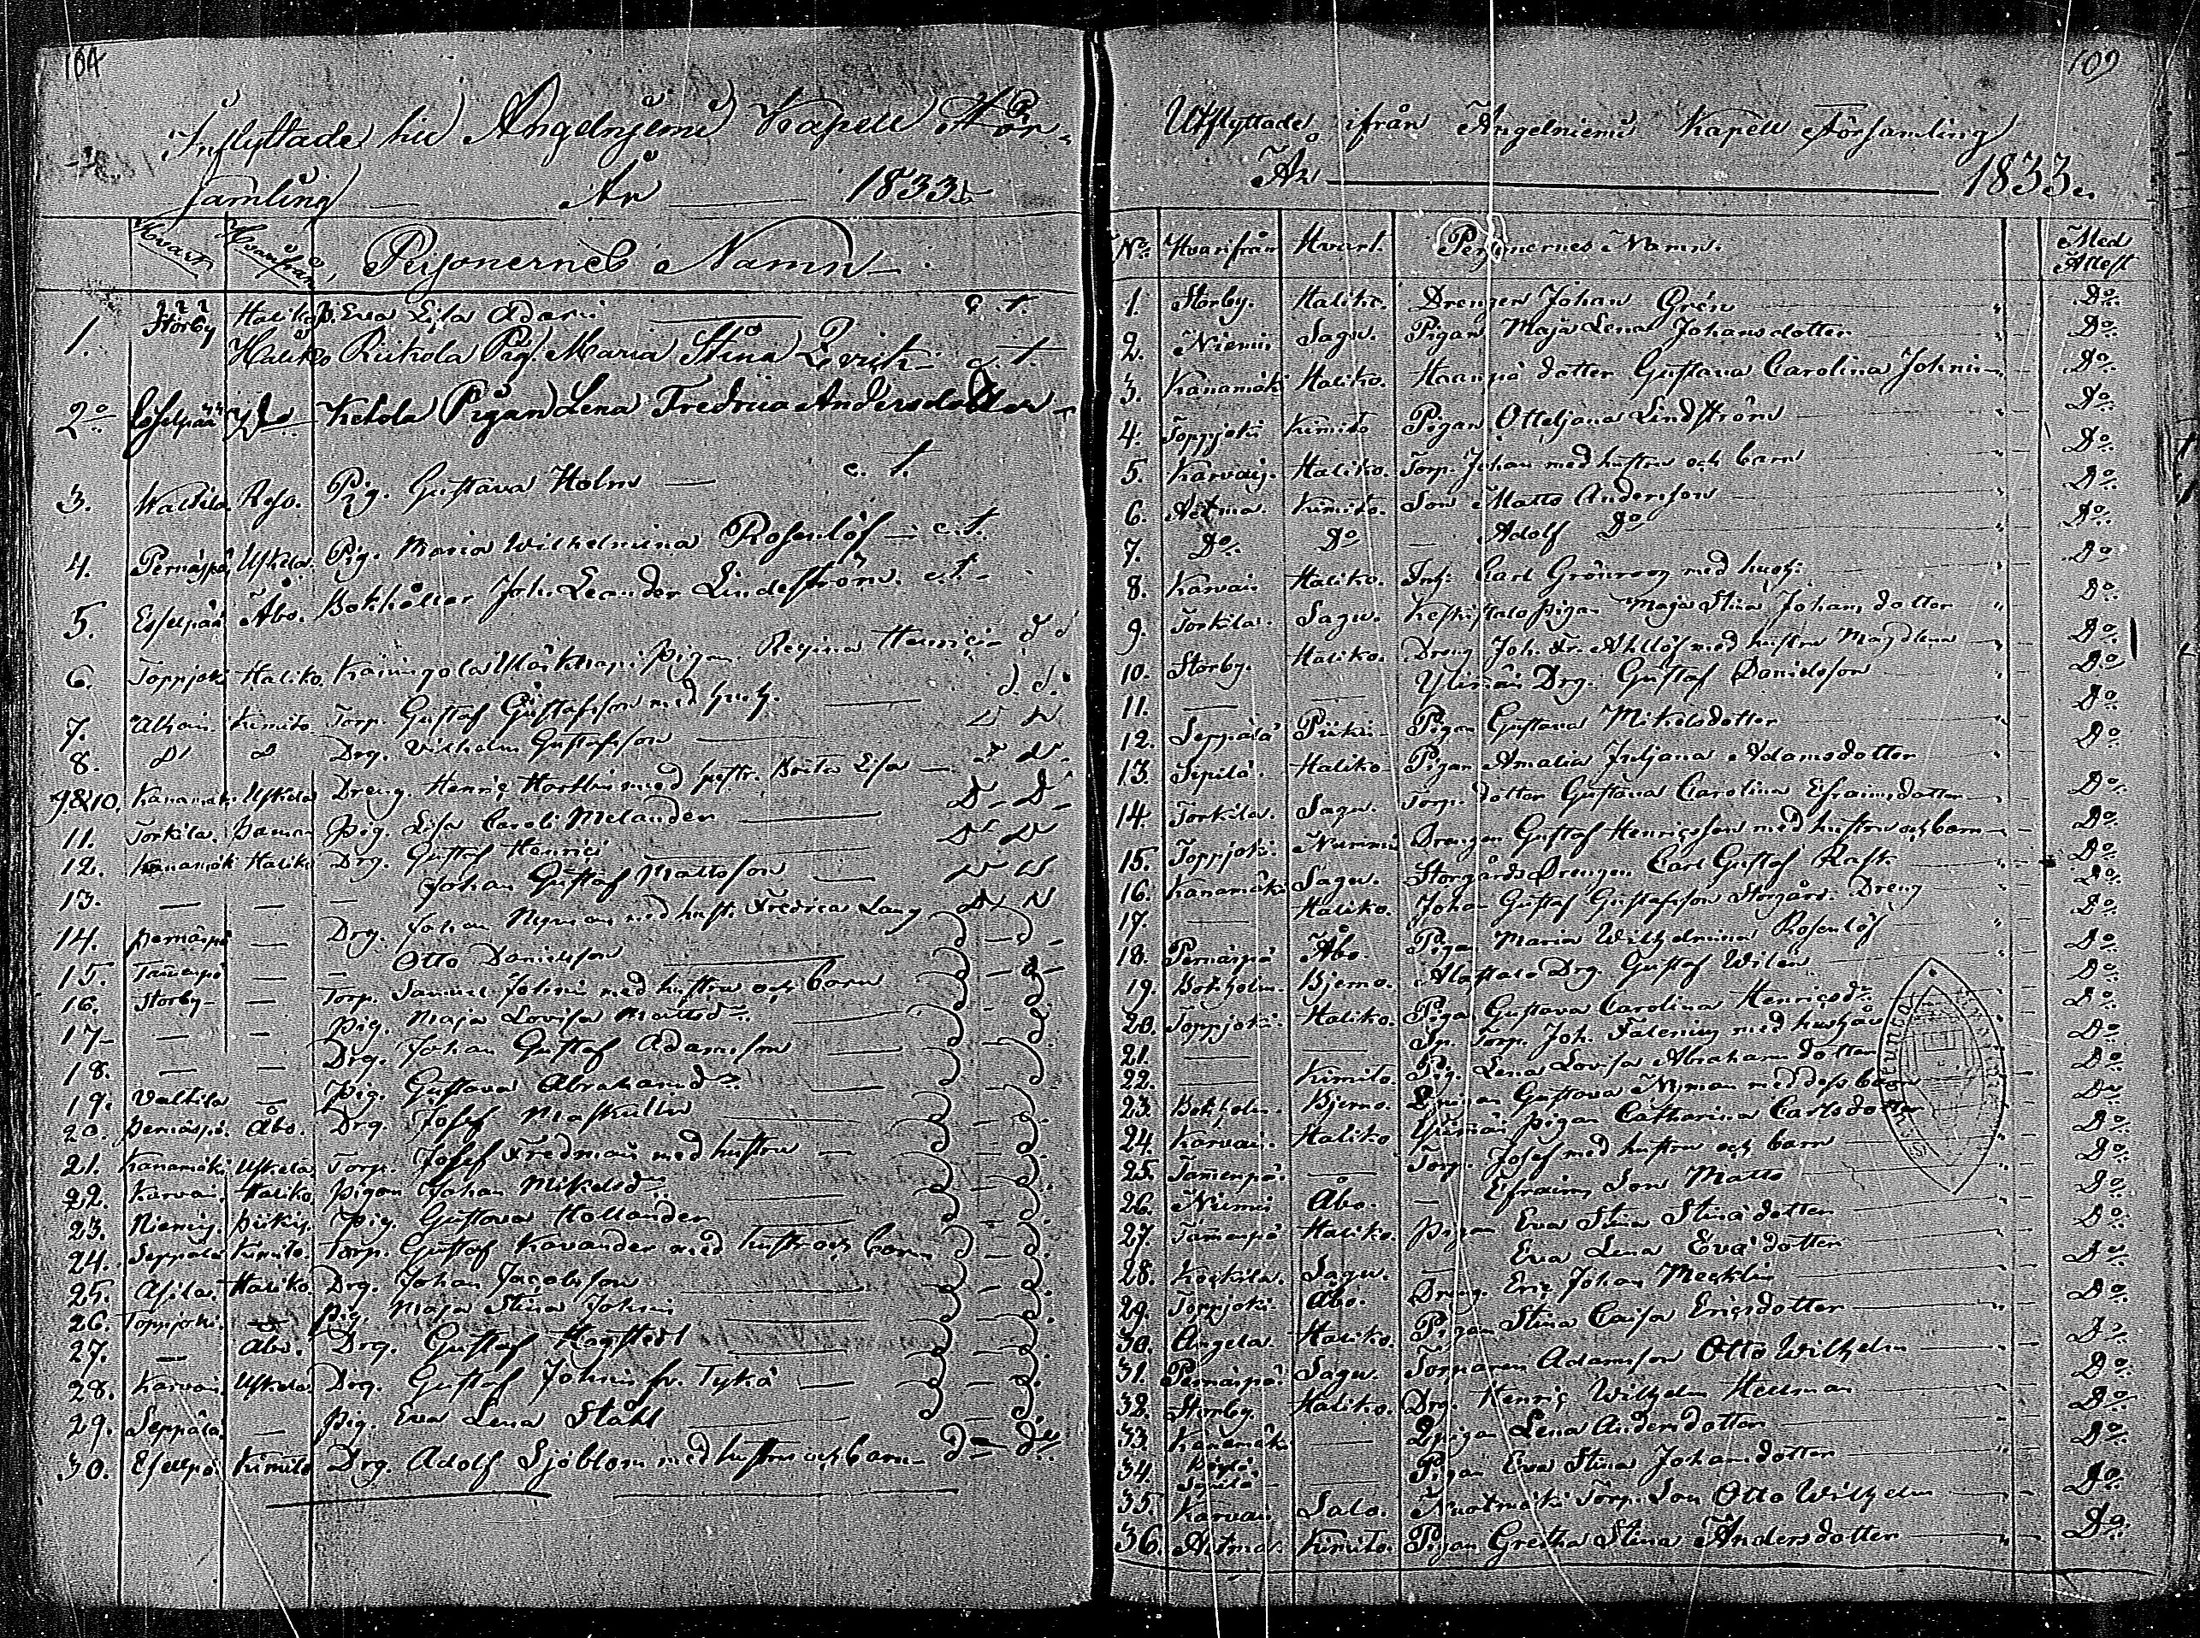 104
Inflyttade hid Angelnjemi Kapell För-
samling År 1833
Hvart Hvarifrån Personernes Namn
1. Storby Haliko P. Eva Lisa Adami c. t.
Haliko Riikola Pig. Maria Stina Qvist c. t.
2o Esselpää Do Ketola Pigan Lena Fredrica Andersdotter
3. Waltila Reso. Pig. Gustava Holm c. t.
4. Pernäspä Uskela. Pig. Maria Wilhelmina Rosenlöf c. t.
5. Esselpää Åbo. Bokhåller Joh. Leander Lindeström. c. t.
6. Toppjoki Haliko. Pigan Regina Henrici
7. Kimito Torp. Gustaf Gustafsson med hust.
8. Drg. Vilhelm Gustafsson
9&10. Kanamäki Uskela Dreng. Henric med hustr. Brita Lisa
11. Torkila. Pig. Lisa Caroli Melander
12. Kanamäk Haliko Drg. Gustaf Henrici
13. — — — Johan Gustaf Mattsson
14. Pernäspä — Drg. Johan Nyman med hust. Fredrica Lang
15. Tamenpä — — Otto Danielsson
16. Storby — Torp. Samuel Johani med hustru och barn
17 — — Pig. Maja Lovisa Mattsdr.
18. — — Drg. Johan Gustaf Adamsson
19. Valtila — Pig. Gustava Abrahamsdr.
20. Pernäspä. Åbo. Drg. Josef Maskulin
21. Kanamäki Uskela Torp. Josef Fredman med hustru
22. Karvai. Haliko Pigan Johan Mikelsdr
23. Niemis. Piikis. Pig. Gustava Hollander
24. Seppälä Kimito. Torp. Gustaf Kavander med hustr och barn
25. Asila. Haliko. Drg. Johan Jacobsson
26. Toppjoki. Pig. Maja Stina Johani
27. — Abo. Drg. Gustaf Hagstedt
28. Karvai. Uskela Drg. Gustaf Johani fr. Tykä
29. Seppäla — Pig. Eva Lena Ståhl
30. Esselpä Kimito Drg. Adolf Sjöblom med hustru och barn
109
Utflyttade ifrån Angelniemi Kapell Församling
År 1833.
No. Hvarifrån Hvart. Personernes Namn. Med Attest
1. Storby. Haliko. Drengen Johan Grén Do.
2. Niemi. Sagu. Pigan Maja Lena Johansdotter Do.
3. Kanamäki Haliko. dotter Gustava Carolina Johani Do.
4. Toppjoki Kimito Pigan Otteljana Lindström Do.
5. Karvaij. Haliko. Torp. Johan med hustru och barn Do.
6. Aetma. Kimito. Son Matts Andersson Do.
7. Do. Do — Adolf Do Do.
8. Karvai Haliko. Inh. Carl Grönroos med hust. Do
9. Torkila. Sagu. Keskistalo Pigan Maja Stina Johansdotter Do.
10. Storby. Haliko. Dreng Joh. Fr. Ahllöf med hustru Magdlena Do.
11. — — Ylimäi Drg. Gustaf Danielsson Do
12. Seppälä Piiki Pigan Gustava Mikelsdotter Do.
13. Sepilä. Haliko Pigan Amalia Juljana Adamsdotter Do
14. Torkila. Sagu. Torp. dotter Gustava Carolina Efraimsdotter Do.
15. Toppjoki. Nummi Drengen Gustaf Henricsson med hustru och barn Do.
16. Kanamäki Sagu. Storgårds Drengen Carl Gustaf Rask Do.
17. — Haliko. Johan Gustaf Gustafsson Storgård. Dreng Do.
18. Pernäspä Åbo. Pigan Maria Wilhelmina Rosenlöf Do.
19. Bokholm. Bjerno. Alastalo Drg. Gustaf Wilén Do.
20. Toppjoki. Haliko. Pigan Gustava Carolina Henricsdr. Do.
21. — — Sp. Torp. Joh. Falenius med hushåll Do.
22. — Kimito. Pig. Lena Lovisa Abrahamsdotter Do
23. Bokholm. Bjerno. Gustava Nyman med dess barn Do.
24. Karvai. Haliko Ylimäi Pigan Catharina Carlsdotter Do.
25. Tamenpä. — Torp. Josef med hustru och barn Do.
26. Niemi Åbo. — Efraims Son Matts Do.
27. Tamenpä Haliko. Pigan Eva Stina Stinasdotter Do.
28. Kockila. Sagu. — Eva Lena Evasdotter Do.
29. Toppjoki. Åbo. Dreng. Eric Johan Mecklin Do.
30. Angela. Haliko. Pigan Stina Caisa Ericsdotter Do.
31. Pernäspä. Sagu. Sornaren Adamsson Otto Wilhelm Do.
32. Storby. Haliko. Drg. Henric Wilhelm Hellman Do.
33. Kanamäki — Pigan Lena Andersdotter Do.
34. Sepilä — Pigan Eva Stina Johansdotter Do.
35. Karvai Salo. Nuotmäki Torp. Son Otto Wilhelm Do
36. Aetma. Kimito. Pigan Gretha Stina Andersdotter Do.